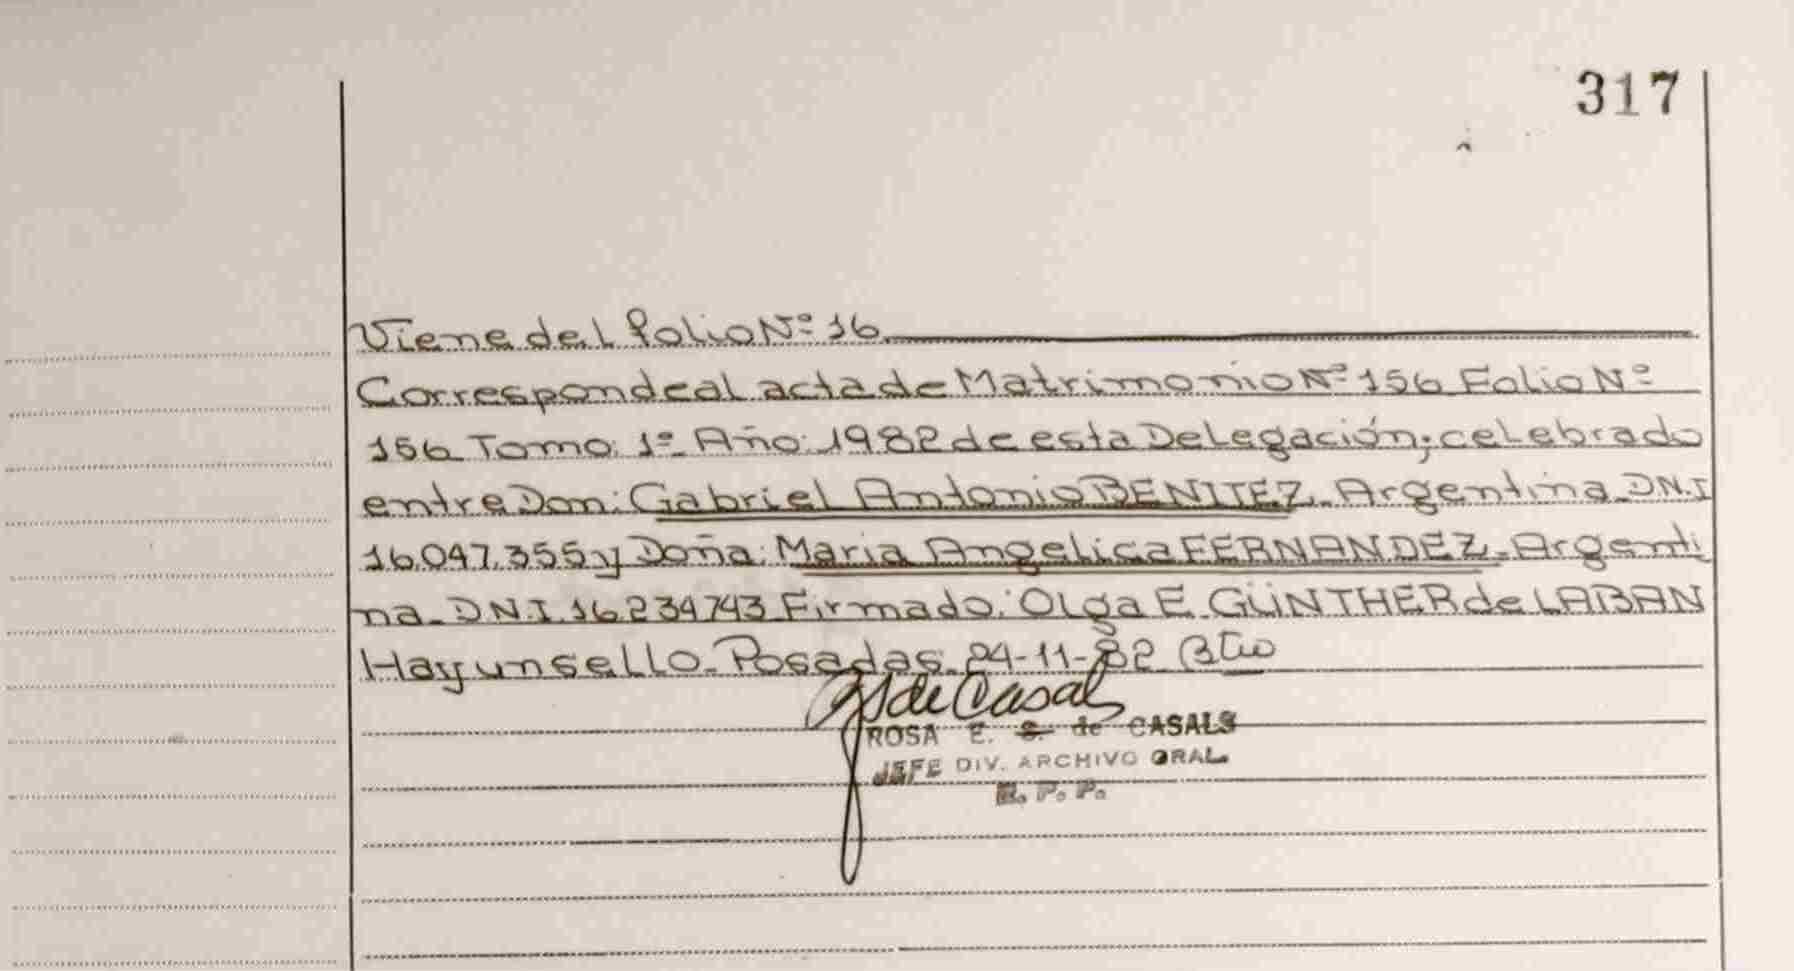 317
Viene del folio Nº 16
Corresponde al acta de Matrimonio Nº 156 Folio Nº
156 Tomo: 1º Año: 1982 de esta Delegación; celebrado
entre Don: Gabriel Antonio BENITEZ. Argentina D.N.I
16.047.355 y Doña: Maria Angelica FERNANDEZ. Argenti
na. D.N.I. 16.234.743 Firmado: Olga E. GÜNTHER de LABAN
Hay un sello. Posadas. 24-11-82
de Casals
ROSA E. S. de CASALS
JEFE DIV. ARCHIVO GRAL.
R. P. P.